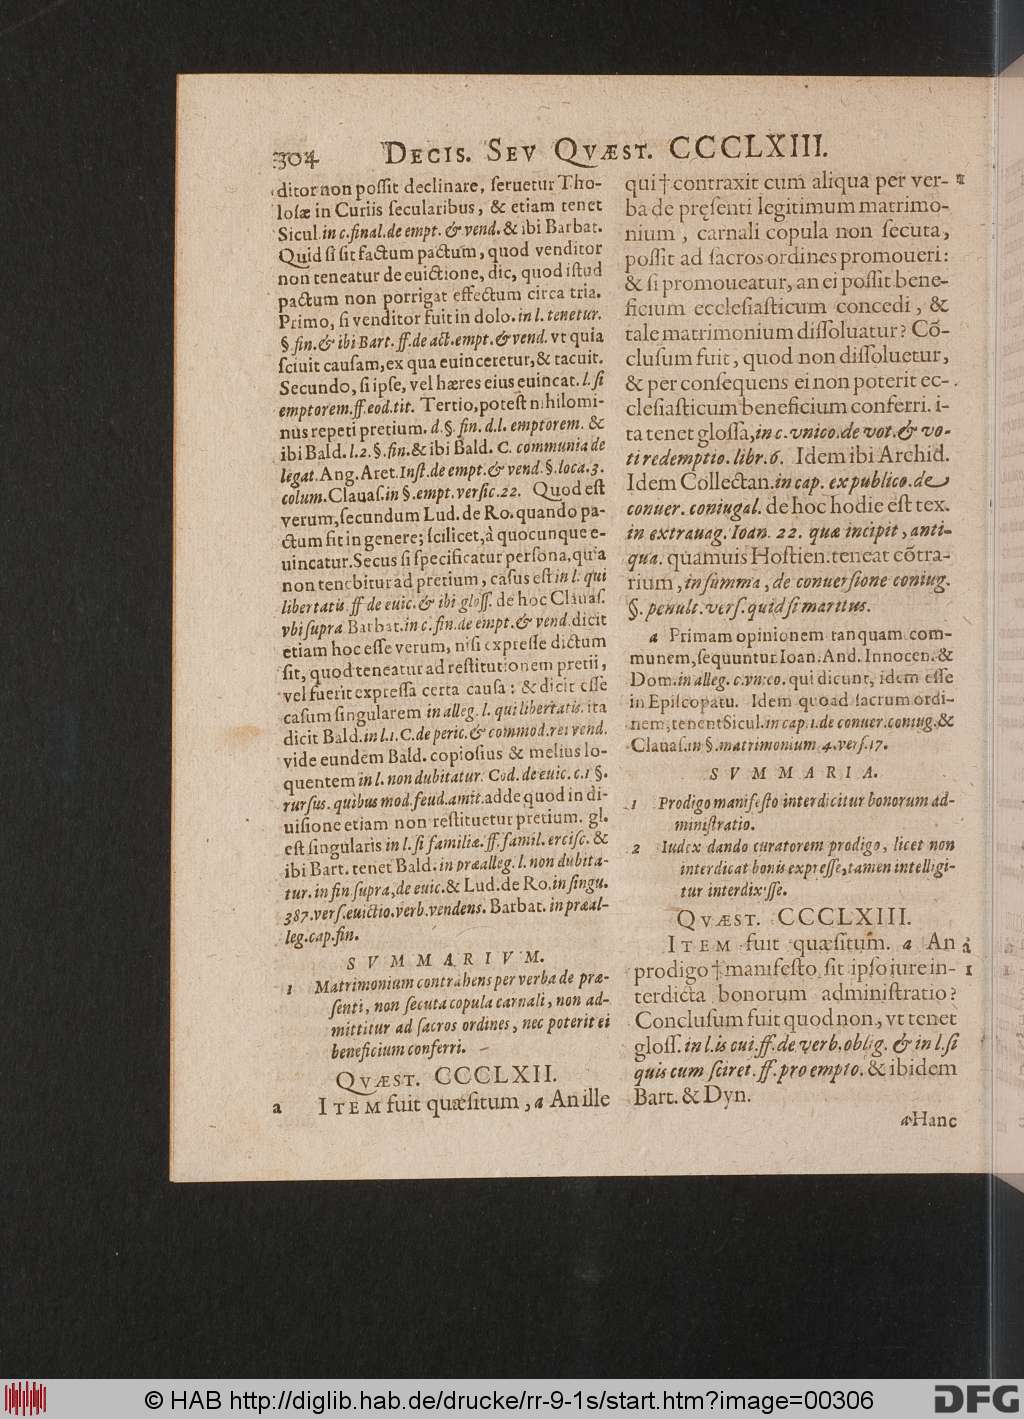 304 DECIS. SEV QVÆST. CCCLXIII.
ditor non poſſit declinare, ſeruetur Tho-
loſæ in Curiis ſecularibus, & etiam tenet
Sicul. in c. final. de empt. & vend. & ibi Barbat.
Quid ſi ſit factum pactum, quod venditor
non teneatur de euictione, dic, quod iſtud
pactum non porrigat effectum circa tria.
Primo, ſi venditor fuit in dolo. in l. tenetur.
§ fin. & ibi Bart. ff. de act. empt. & vend. vt quia
ſciuit cauſam, ex qua euinceretur, & tacuit.
Secundo, ſi ipſe, vel hæres eius euincat. l. ſi
emptorem. ff. eod. tit. Tertio, poteſt nihilomi-
nus repeti pretium. d. §. fin. d. l. emptorem. &
ibi Bald. l. 2. §. fin. & ibi Bald. C. communia de
legat. Ang. Aret. Inſt. de empt. & vend. §. loca. 3.
colum. Clauaſ. in §. empt. verſic. 22. Quod eſt
verum, ſecundum Lud. de Ro. quando pa-
ctum ſit in genere; ſcilicet, à quocunque e-
uincatur. Secus ſi ſpecificatur perſona, quia
non tenebitur ad pretium, caſus eſt in l. qui
libertatis. ff de euic. & ibi gloſſ. de hoc Clauaſ.
vbi ſupra Barbat. in c. fin. de empt. & vend. dicit
etiam hoc eſſe verum, niſi expreſſe dictum
ſit, quod teneatur ad reſtitutionem pretii,
vel fuerit expreſſa certa cauſa: & dicit eſſe
caſum ſingularem in alleg. l. qui libertatis. ita
dicit Bald. in l. 1. C. de peric. & commod. rei vend.
vide eundem Bald. copioſius & melius lo-
quentem in l. non dubitatur. Cod. de euic. c. 1 §.
rurſus. quibus mod. feud. amit. adde quod in di-
uiſione etiam non reſtituetur pretium. gl.
eſt ſingularis in l. ſi familiæ. ff. famil. erciſc. &
ibi Bart. tenet Bald. in præalleg. l. non dubita-
tur. in fin ſupra, de euic. & Lud. de Ro. in ſingu.
387. verſ. euictio. verb. vendens. Barbat. in præal-
leg. cap. fin.
SVMMARIVM.
1 Matrimonium contrahens per verba de præ-
ſenti, non ſecuta copula carnali, non ad-
mittitur ad ſacros ordines, nec poterit ei
beneficium conferri.
QVÆST. CCCLXII.
a ITEM fuit quæſitum, a An ille
qui † contraxit cum aliqua per ver- 1
ba de pręſenti legitimum matrimo-
nium, carnali copula non ſecuta,
poſſit ad ſacros ordines promoueri:
& ſi promoueatur, an ei poſſit bene-
ficium eccleſiaſticum concedi, &
tale matrimonium diſſoluatur? Cõ-
cluſum fuit, quod non diſſoluetur,
& per conſequens ei non poterit ec-
cleſiaſticum beneficium conferri. i-
ta tenet gloſſa, in c. vnico. de vot. & vo-
ti redemptio. libr. 6. Idem ibi Archid.
Idem Collectan. in cap. ex publico. de
conuer. coniugal. de hoc hodie eſt tex.
in extrauag. Ioan. 22. quæ incipit, anti-
qua. quamuis Hoſtien. teneat cõtra-
rium, in ſumma, de conuerſione coniug.
§. penult. verſ. quid ſi maritus.
a Primam opinionem tanquam com-
munem, ſequuntur Ioan. And. Innocen. &
Dom. in alleg. c. vnico. qui dicunt, idem eſſe
in Epiſcopatu. Idem quoad ſacrum ordi-
nem, tenent Sicul. in cap. 1. de conuer. coniug. &
Clauaſ. in §. matrimonium 4. verſ. 17.
SVMMARIA.
1 Prodigo manifeſto interdicitur bonorum ad-
miniſtratio.
2 Iudex dando curatorem prodigo, licet non
interdicat bonis expreſſe, tamen intelligi-
tur interdixiſſe.
QVÆST. CCCLXIII.
ITEM fuit quæſitum. a An a
prodigo † manifeſto ſit ipſo iure in- 1
terdicta bonorum adminiſtratio?
Concluſum fuit quod non, vt tenet
gloſſ. in l. is cui. ff. de verb. oblig. & in l. ſi
quis cum ſciret. ff. pro empto. & ibidem
Bart. & Dyn.
a Hanc
© HAB http://diglib.hab.de/drucke/rr-9-1s/start.htm?image=00306
DFG